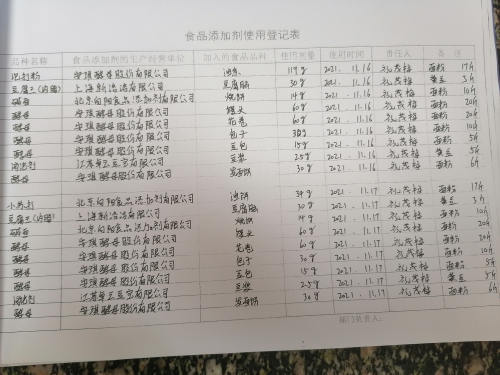 食品添加剂使用登记表
品种名称 食品添加剂的生产经营单位 加入的食品品种 使用剂量 使用时间 责任人 备注
泡打粉 安琪酵母股份有限公司 油条 119g 2021.11.16 面粉 17斤
豆腐王(内酯) 上海新 有限公司 豆腐脑 30g 2021.11.16 黄豆 3斤
碱面 北京向阳食品添加剂有限公司 烧饼 14g 2021.11.16 面粉 10斤
酵母 安琪酵母股份有限公司 馒头 60g 2021.11.16 面粉 20斤
酵母 安琪酵母股份有限公司 花卷 60g 2021.11.16 面粉 20斤
酵母 安琪酵母股份有限公司 包子 30g 2021.11.16 面粉 10斤
酵母 安琪酵母股份有限公司 豆包 15g 2021.11.16 面粉 5斤
消泡剂 江苏 有限公司 豆浆 25g 2021.11.16 黄豆 5斤
酵母 安琪酵母股份有限公司 30g 2021.11.16 面粉 6斤
小苏打 北京向阳食品添加剂有限公司 油饼 34g 2021.11.17 面粉 17斤
豆腐王(内酯) 上海新 有限公司 豆腐脑 30g 2021.11.17 黄豆 3斤
碱面 北京向阳食品添加剂有限公司 烧饼 14g 2021.11.17 面粉 10斤
酵母 安琪酵母股份有限公司 馒头 60g 2021.11.17 面粉 20斤
酵母 安琪酵母股份有限公司 花卷 60g 2021.11.17 面粉
酵母 安琪酵母股份有限公司 包子 30g 2021.11.17 面粉 10斤
酵母 安琪酵母股份有限公司 豆包 15g 2021.11.17 面粉 5斤
消泡剂 江苏 有限公司 豆浆 25g 2021.11.17 黄豆 5斤
酵母 安琪酵母股份有限公司 30g 2021.11.17 面粉 6斤
部门负责人: